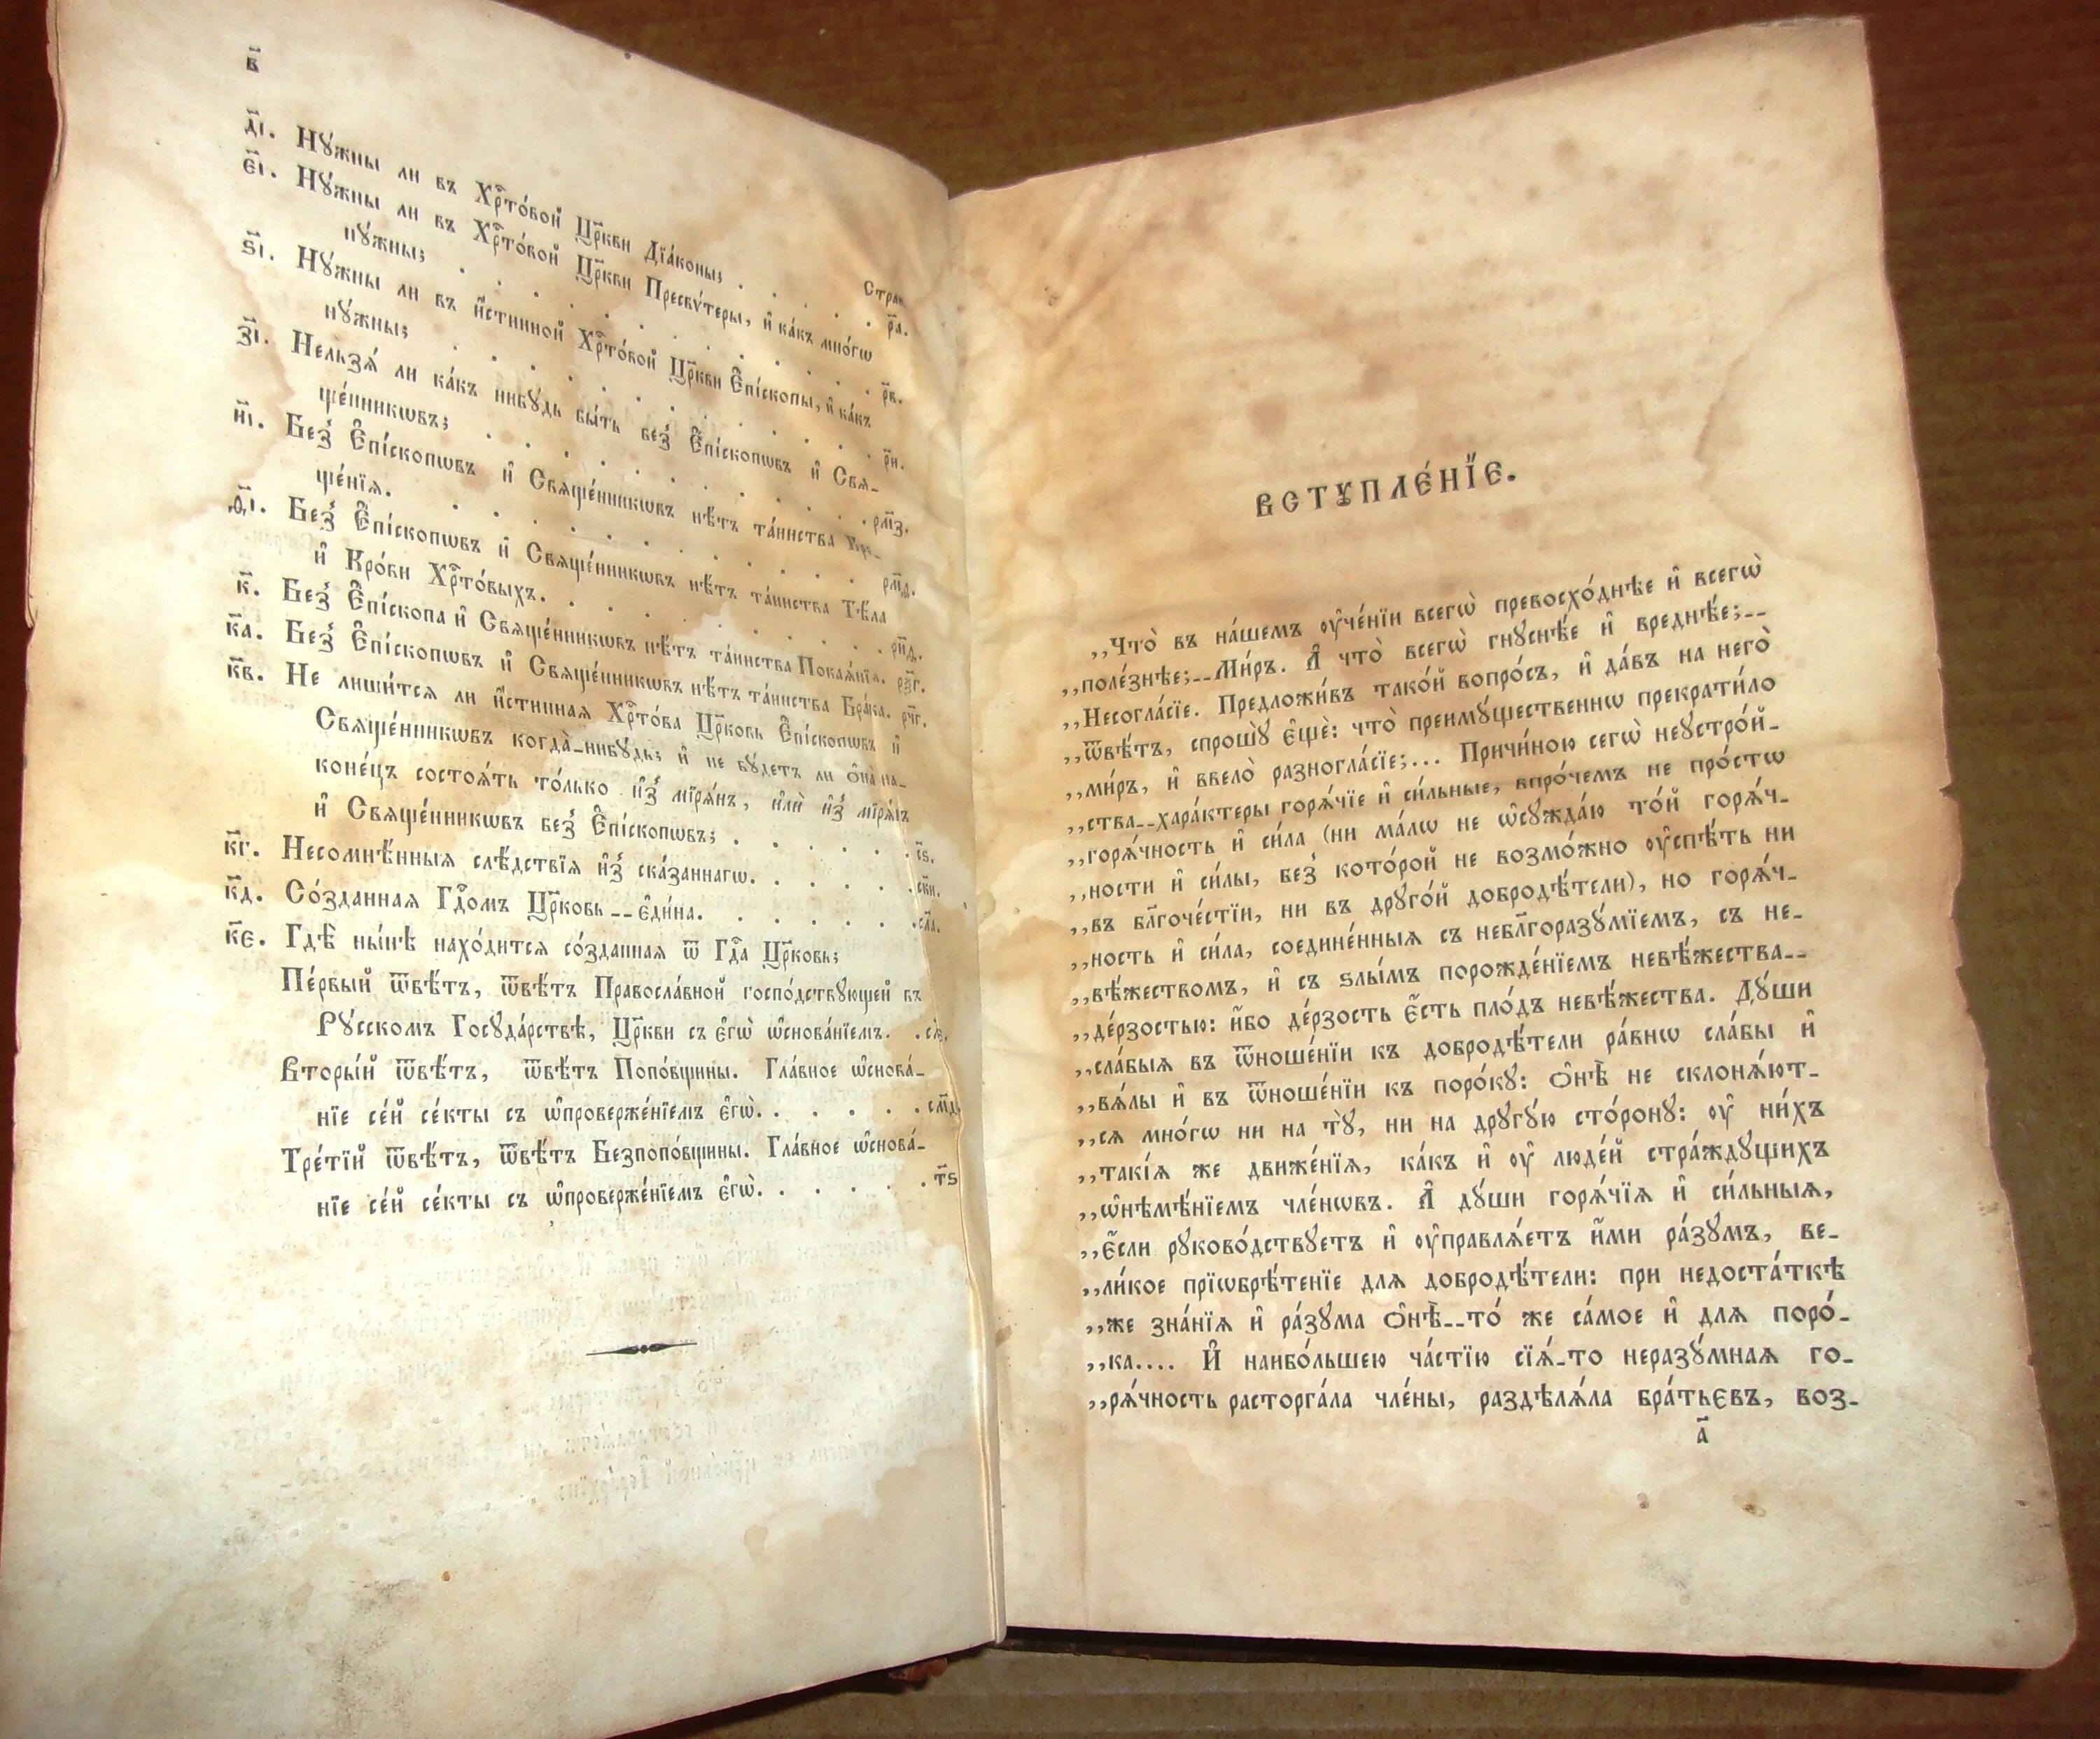 в҃
Стран.
д҃і. Нꙋ́жны ли въ Хрⷭ҇то́вой Цр҃кви Дїа́коны; . . . . . р҃а.
є҃і. Нꙋ́жны ли въ Хрⷭ҇то́вой Цр҃кви Пресвѵ́теры, и҆ ка́къ мно́гѡ
нꙋ́жны; . . . . . р҃в.
ѕ҃і. Нꙋ́жны ли въ и҆́стинной Хрⷭ҇то́вой Цр҃кви Є҆пі́скопы, и҆ ка́къ
нꙋ́жны; . . . . . р҃и.
з҃і. Нельзѧ́ ли ка́къ нибꙋ́дь бы́ть без̾ Є҆пі́скопѡвъ и҆ Свѧ-
ще́нникѡвъ; . . . . .
и҃і. Без̾ Є҆пі́скопѡвъ и҆ Свѧще́нникѡвъ нѣ́тъ та́инства
ще́нїѧ. . . . . .
ѳ҃і. Без̾ Є҆пі́скопѡвъ и҆ Свѧще́нникѡвъ нѣ́тъ та́инства Тѣ́ла
и҆ Кро́ви Хрⷭ҇то́выхъ. . . . . .
к҃. Без̾ Є҆пі́скопа и҆ Свѧще́нникѡвъ нѣ́тъ та́инства Покаѧ́нїѧ. рѯ҃г.
к҃а. Без̾ Є҆пі́скопѡвъ и҆ Свѧще́нникѡвъ нѣ́тъ та́инства Бра́ка. рч҃г.
к҃в. Не лиши́тсѧ ли и҆́стиннаѧ Хрⷭ҇то́ва Цр҃ковь Є҆пі́скопѡвъ и҆
Свѧще́нникѡвъ когда̀-нибꙋ́дь; и҆ не бꙋ́детъ ли ѻ҆на̀ на-
коне́цъ состоѧ́ть то́лько и҆з̾ мїрѧ́нъ, и҆лѝ и҆з̾ мїрѧ́нъ
и҆ Свѧще́нникѡвъ без̾ Є҆пі́скопѡвъ; . . . . . с҃ѕ.
к҃г. Несомнѣ́нныѧ слѣ́дствїѧ и҆з̾ ска́заннагѡ. . . . . . ск҃и.
к҃д. Со́зданнаѧ Гдⷭ҇омъ Цр҃ковь -- є҆ди́на. . . . . . сл҃а.
к҃є. Гдѣ̀ ны́нѣ нахо́дитсѧ со́зданнаѧ ѿ Гдⷭ҇а Цр҃ковь;
Пе́рвый ѿвѣ́тъ, ѿвѣ́тъ Правосла́вной госпо́дствꙋющей въ
Рꙋ́сскомъ Госꙋда́рствѣ, Цр҃кви съ є҆гѡ̀ ѡ҆снова́нїемъ. .
Вторы́й ѿвѣ́тъ, ѿвѣ́тъ Попо́вщины. Гла́вное ѡ҆снова́-
нїе се́й се́кты съ ѡ҆проверже́нїемъ є҆гѡ̀. . . . . . см҃д.
Тре́тїй ѿвѣ́тъ, ѿвѣ́тъ Безпопо́вщины. Гла́вное ѡ҆снова́-
нїе се́й се́кты съ ѡ҆проверже́нїемъ є҆гѡ̀. . . . . . т҃ѕ
ВСТꙊПЛЕ́НЇЕ.
,,Что̀ въ на́шемъ ᲂу҆че́нїи всегѡ̀ превосхо́днѣе и҆ всегѡ̀
,,поле́знѣе;--Ми́ръ. А҆ что̀ всегѡ̀ гнꙋснѣ́е и҆ вреднѣ́е;--
,,Несогла́сїе. Предложи́въ тако́й вопро́съ, и҆ да́въ на него̀
,,ѿвѣ́тъ, спрошꙋ̀ є҆щѐ: что̀ преимꙋ́щественнѡ прекрати́ло
,,ми́ръ, и҆ ввело̀ разногла́сїе;... Причи́ною сегѡ̀ неꙋстро́й-
,,ства--хара́ктеры горѧ́чїе и҆ си́льные, впро́чемъ не про́стѡ
,,горѧ́чность и҆ си́ла (ни ма́лѡ не ѡ҆сꙋжда́ю то́й горѧ́ч-
,,ности и҆ си́лы, без̾ кото́рой не возмо́жно ᲂу҆спѣ́ть ни
,,въ бл҃гоче́стїи, ни въ дрꙋго́й добродѣ́тели), но горѧ́ч-
,,ность и҆ си́ла, соедине́нныѧ съ небл҃горазꙋ́мїемъ, съ не-
,,вѣ́жествомъ, и҆ съ ѕлы́мъ порожде́нїемъ невѣ́жества--
,,де́рзостью: и҆́бо де́рзость є҆́сть пло́дъ невѣ́жества. Дꙋ́ши
,,сла́быѧ въ ѿноше́нїи къ добродѣ́тели ра́внѡ сла́бы и҆
,,вѧ́лы и҆ въ ѿноше́нїи къ поро́кꙋ: ѻ҆нѣ̀ не склонѧ́ют-
,,сѧ мно́гѡ ни на тꙋ̀, ни на дрꙋгꙋ́ю сто́ронꙋ: ᲂу҆ ни́хъ
,,такі́ѧ же движе́нїѧ, ка́къ и҆ ᲂу҆ люде́й стра́ждꙋщихъ
,,ѡ҆нѣмѣ́нїемъ чле́нѡвъ. А҆ дꙋ́ши горѧ́чїѧ и҆ си́льныѧ,
,,є҆́сли рꙋково́дствꙋетъ и҆ ᲂу҆правлѧ́етъ и҆́ми ра́зꙋмъ, ве-
,,ли́кое прїѡбрѣ́тенїе длѧ добродѣ́тели: при недоста́ткѣ
,,же зна́нїѧ и҆ ра́зꙋма ѻ҆нѣ̀--то́ же са́мое и҆ длѧ поро́-
,,ка.... И҆ наибо́льшею ча́стїю сїѧ́-то неразꙋ́мнаѧ го-
,,рѧ́чность расторга́ла чле́ны, раздѣлѧ́ла бра́тьєвъ, воз-
а҃